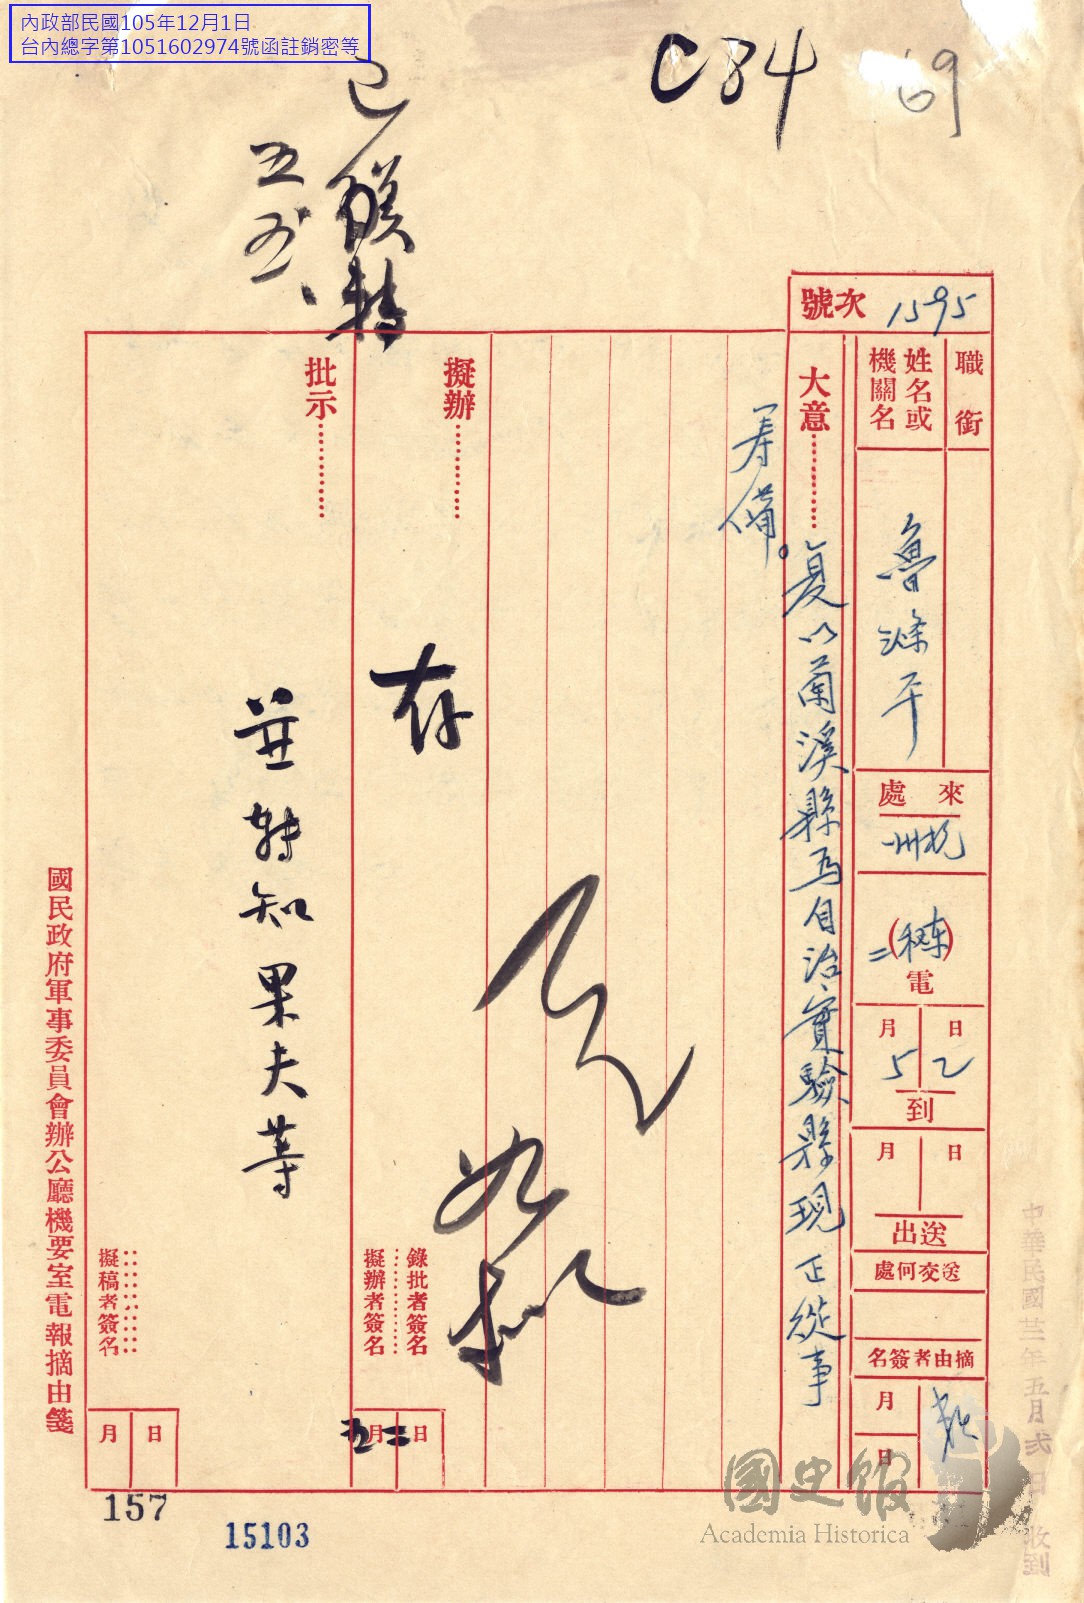 內政部民國105年12月1日
台內總字第1051602974號函註銷密等
C84
69
已膁轉
五五、
號次
1595
職銜
姓名或
機關名
魯滌平
來處
杭州
電
二
5月2日到
月日送出
送交何處
摘由者簽名
月日
大意…………
复以蘭溪縣为自治實驗縣現正從事
筹備。
擬辦…………
存
批示…………
並轉知果夫等
錄批者簽名
擬辦者簽名
五月二日
擬稿者簽名
月日
國民政府軍事委員會辦公廳機要室電報摘由箋
中華民國廿三年五月弍日收到
157
15103
國史館
Academia Historica